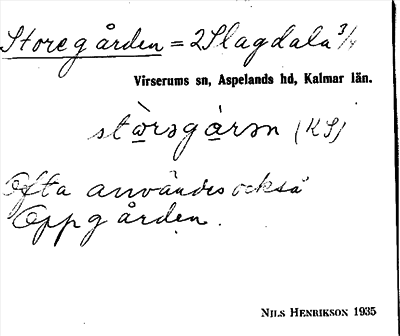 Storegården = 2 Slagdala 3/4
Virserums sn, Aspelands hd, Kalmar län.
stòrəgàrən (KS)
Ofta användes också
Oppgården.
NILS HENRIKSON 1935